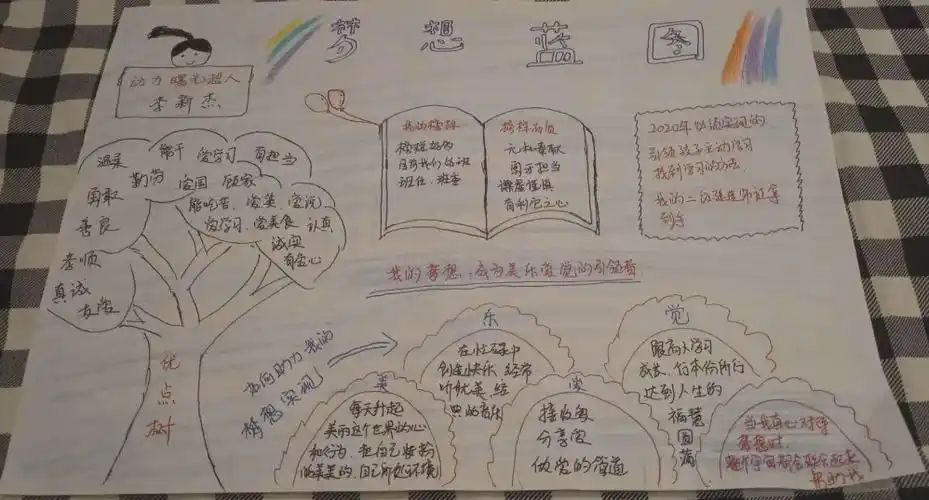 梦想蓝图
动力曙光超人
李新杰
温柔 能干 爱学习 有担当
勇敢 勤劳 爱国 顾家
善良 能吃苦、爱美、爱说
爱学习、爱美食 认真
孝顺 诚实
真诚 有爱心
友善
优点树
我的榜样
榜样的
班任、班委
榜样品质
无私奉献
勇于担当
谦虚谨慎
有利它之心
2020年必须实现的
引领孩子主动学习
找到学习的方法.
我的二级建造师证拿
到手
我的梦想,成为美乐爱觉的引领者
如何助力我的
梦想实现
美
每天升起
美丽这个世界的心
和行为,把自己妆扮
的美美的,自己所处环境
乐
在忙碌中
创造快乐,经常
听优美、经
典的音乐
爱
接收爱
分享爱
做爱的管道
觉
跟高人学习
成长、行本份所行
达到人生的
福慧圆满
当我真心对待
梦想时,
整个宇宙都会联合起来
帮助我